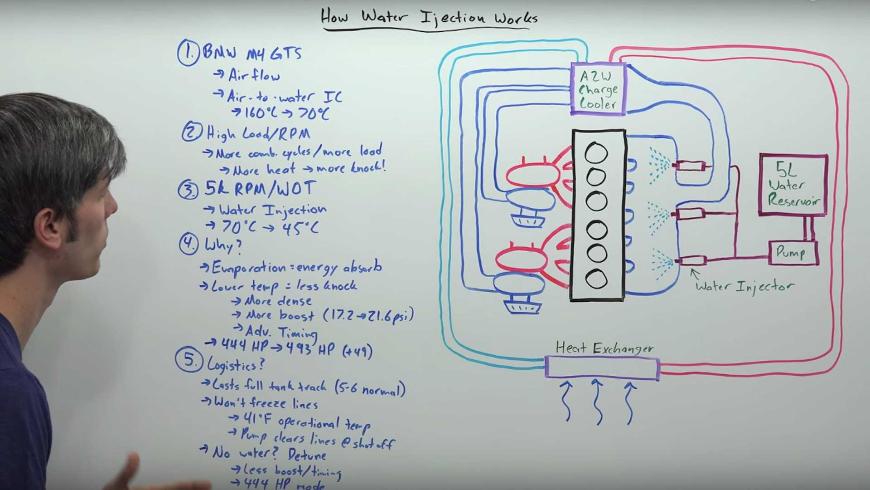 How Water Injection Works
1. BMW M4 GTS
→ Airflow
→ Air-to-water IC
→ 160°C → 70°C
2. High Load/RPM
→ More comb. cycles/more load
→ More heat → more knock!
3. 5k RPM/WOT
→ Water Injection
→ 70°C → 45°C
4. Why?
→ Evaporation = energy absorb
→ Lower temp = less knock
→ More dense
→ More boost (17.2 → 21.6 psi)
→ Adv. Timing
→ 444 HP → 493 HP (+49)
5. Logistics?
→ Lasts full tank track (5-6 normal)
→ Won't freeze lines
→ 41°F operational temp
→ Pump clears lines @ shut off
→ No water? Detune
→ Less boost/timing
→ 444 HP mode
A2W
Charge
Cooler
5L
Water
Reservoir
Pump
Water Injector
Heat Exchanger